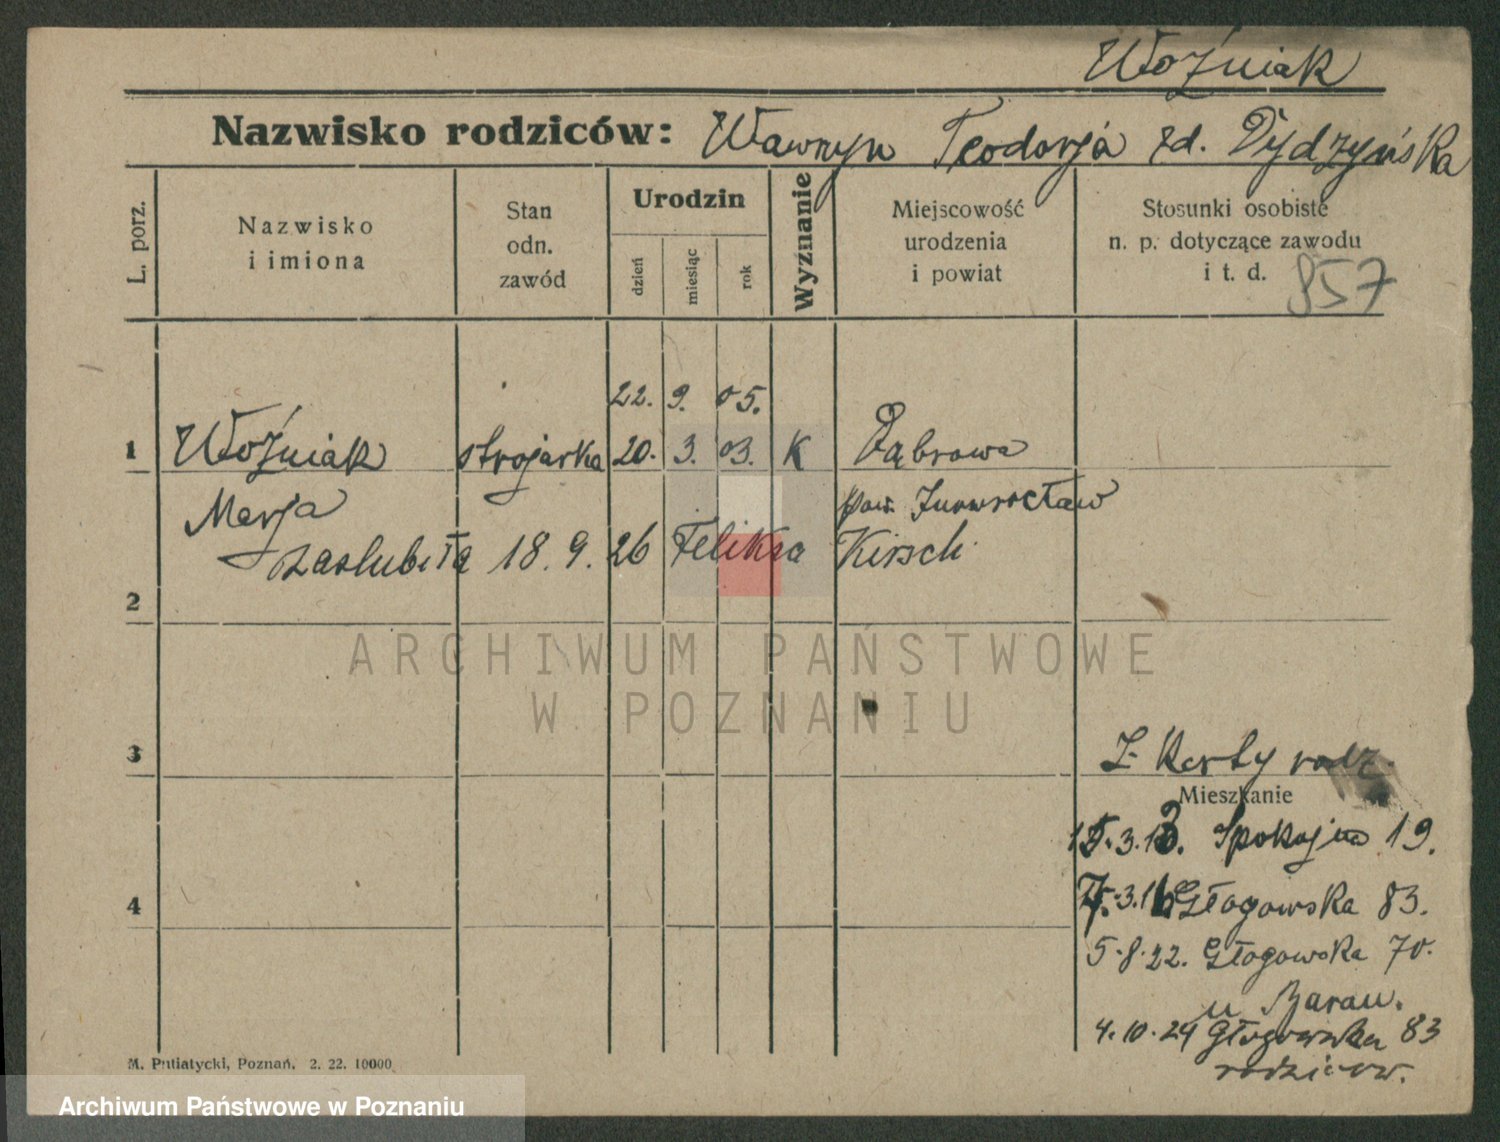 Woźniak
Nazwisko rodziców: Wawrzyn Teodorja zd. Dydzyńska
L. porz.
Nazwisko i imiona
Stan odn. zawód
Urodzin
dzień
miesiąc
rok
Wyznanie
Miejscowość urodzenia i powiat
Stosunki osobiste n. p. dotyczące zawodu i t. d.
857
22. 9. 05.
1 Woźniak strojarka 20. 3. 03. K Dąbrowa
Marja pow. Inowrocław
zaślubiła 18. 9. 26 Feliksa Kirsch
2
ARCHIWUM PAŃSTWOWE
W POZNANIU
3 Z Karty rodz.
Mieszkanie
15.3.13. Spokojna 19.
4 7.3.16 Głogowska 83.
5.8.22. Głogowska 70.
u Baran.
4.10.24 Głogowska 83
rodziców.
M. Putiatycki, Poznań. 2. 22. 10000
Archiwum Państwowe w Poznaniu